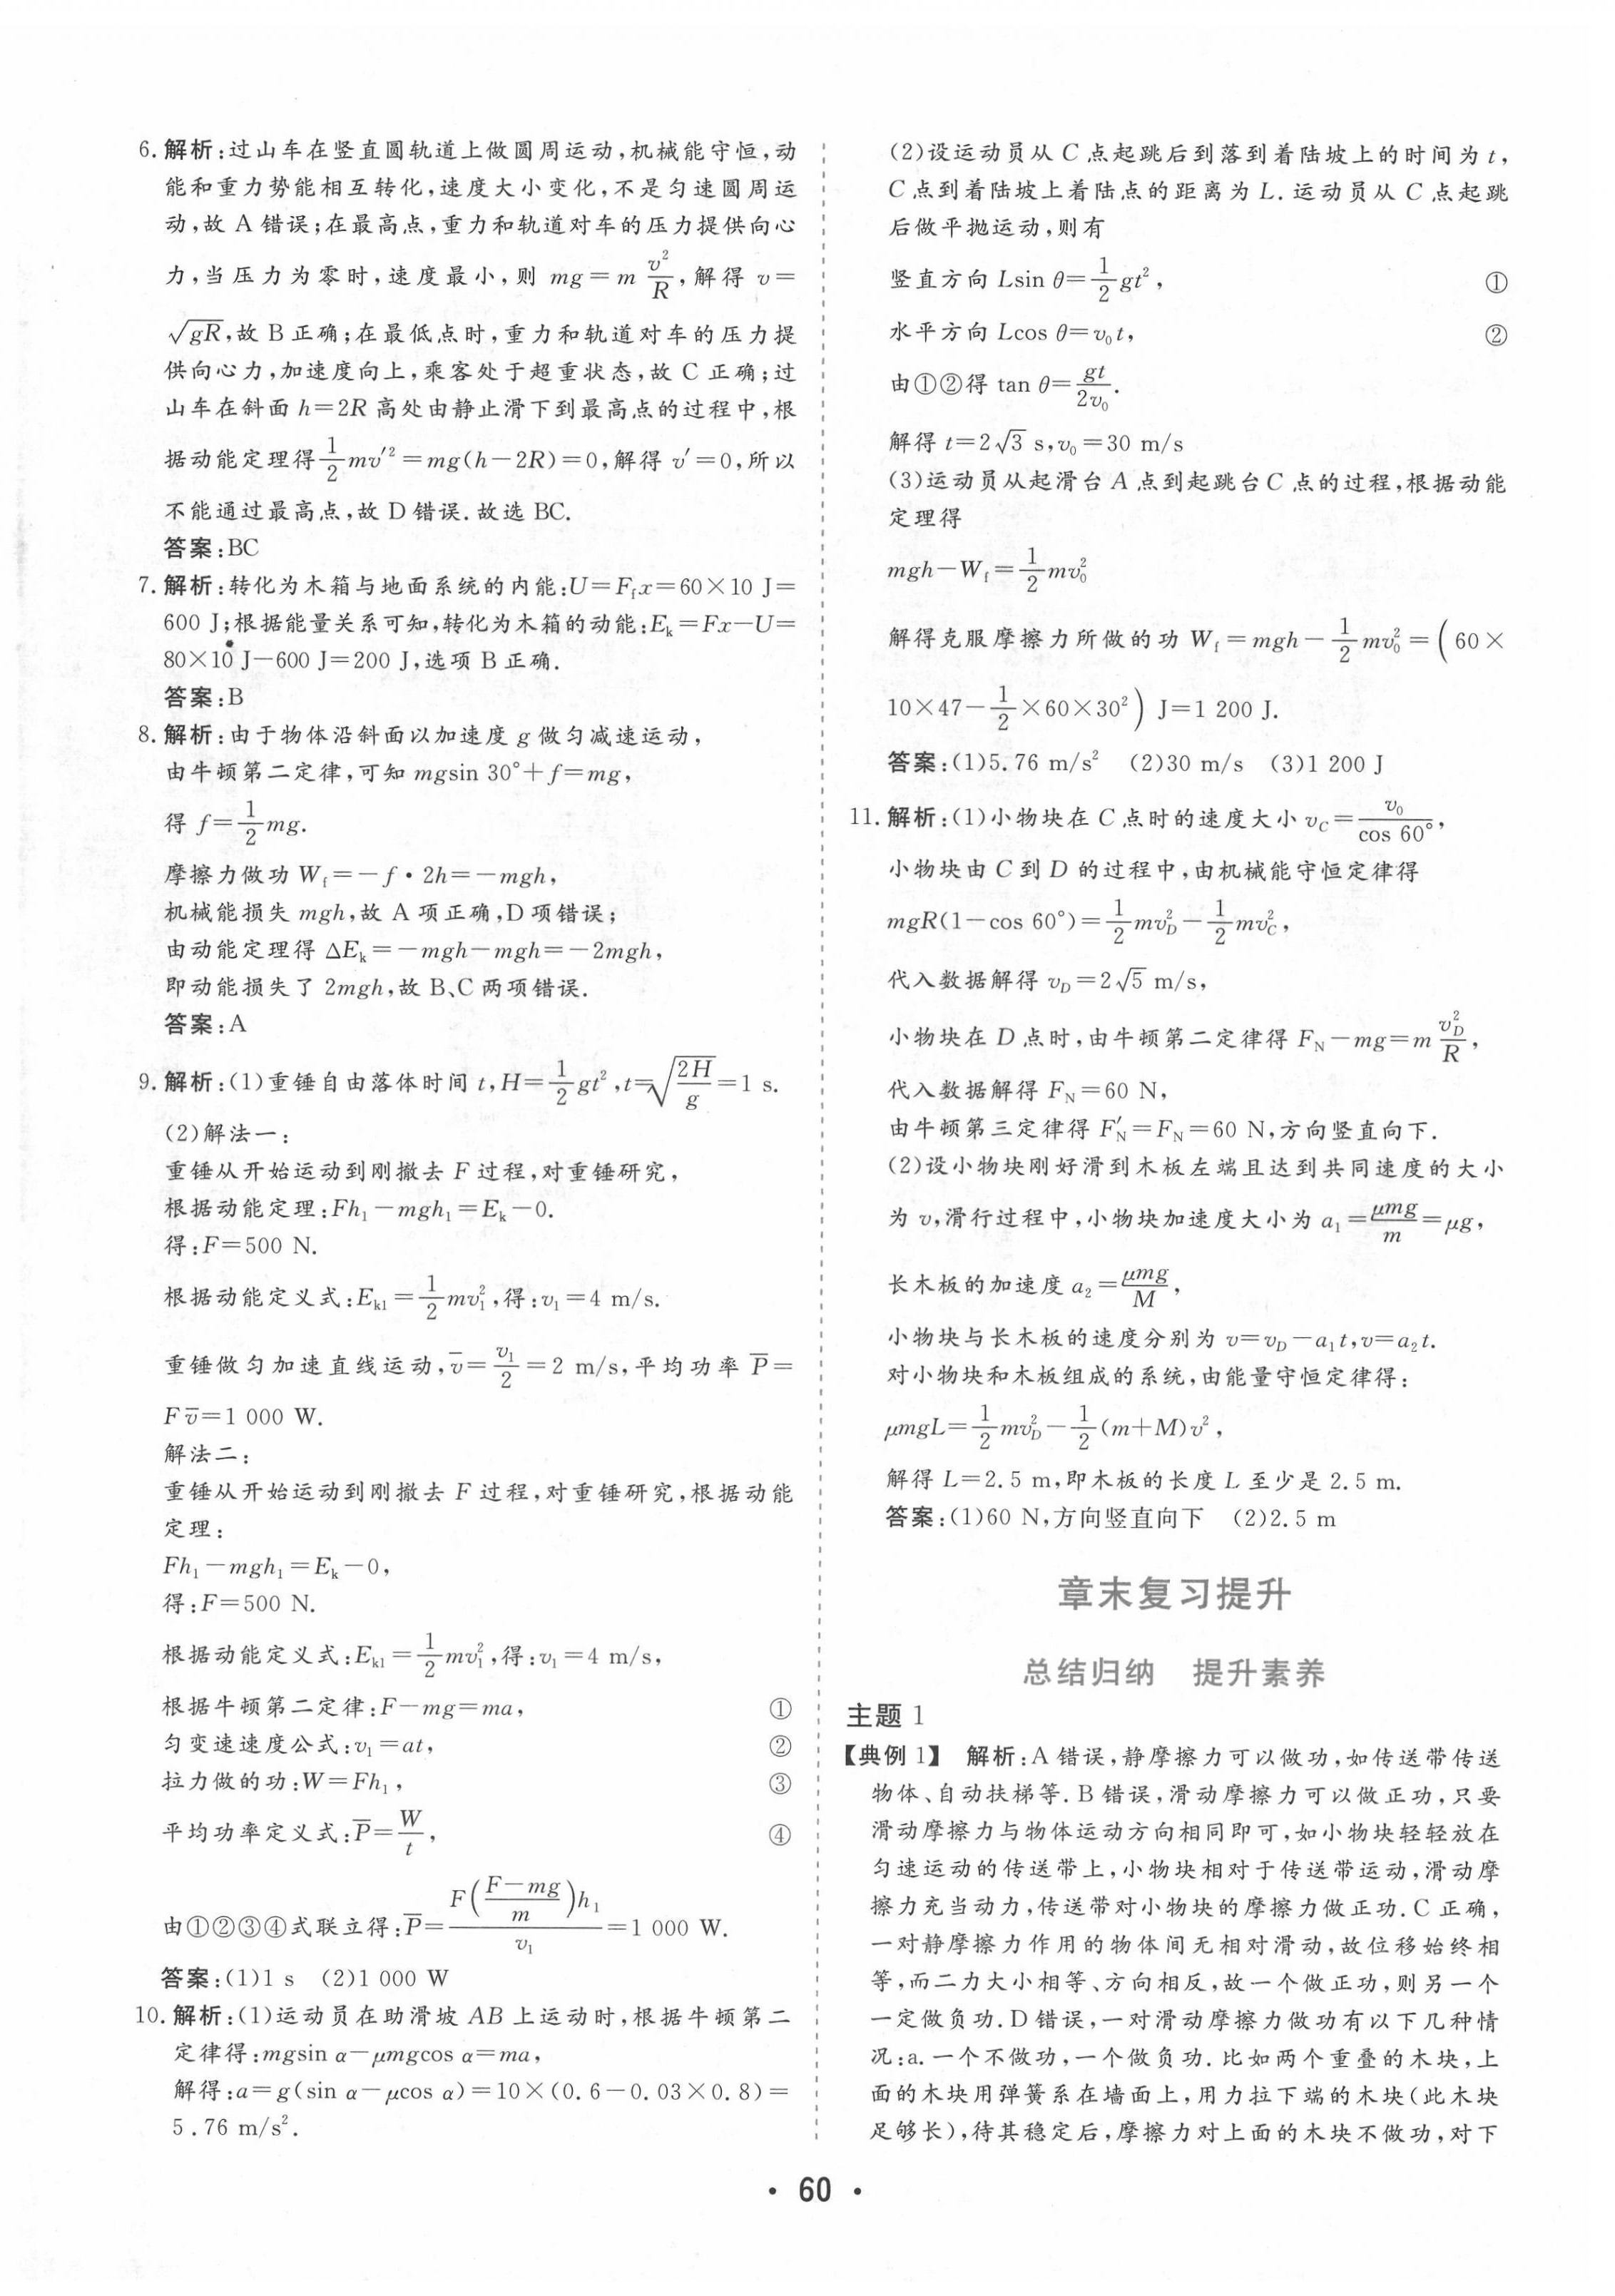 6. 解析:过山车在竖直圆轨道上做圆周运动,机械能守恒,动
能和重力势能相互转化,速度大小变化,不是匀速圆周运
动,故 A 错误;在最高点,重力和轨道对车的压力提供向心
力,当压力为零时,速度最小,则 mg=m v²/R,解得 v=
√gR,故 B 正确;在最低点时,重力和轨道对车的压力提
供向心力,加速度向上,乘客处于超重状态,故 C 正确;过
山车在斜面 h=2R 高处由静止滑下到最高点的过程中,根
据动能定理得 1/2 mv′²=mg(h-2R)=0,解得 v′=0,所以
不能通过最高点,故 D 错误.故选 BC.
答案:BC
7. 解析:转化为木箱与地面系统的内能:U=F_f x=60×10 J=
600 J;根据能量关系可知,转化为木箱的动能:E_k=Fx-U=
80×10 J-600 J=200 J,选项 B 正确.
答案:B
8. 解析:由于物体沿斜面以加速度 g 做匀减速运动,
由牛顿第二定律,可知 mgsin 30°+f=mg,
得 f=1/2 mg.
摩擦力做功 W_f=-f·2h=-mgh,
机械能损失 mgh,故 A 项正确,D 项错误;
由动能定理得 ΔE_k=-mgh-mgh=-2mgh,
即动能损失了 2mgh,故 B、C 两项错误.
答案:A
9. 解析:(1)重锤自由落体时间 t,H=1/2 gt²,t=√(2H/g)=1 s.
(2)解法一:
重锤从开始运动到刚撤去 F 过程,对重锤研究,
根据动能定理:Fh₁-mgh₁=E_k-0.
得:F=500 N.
根据动能定义式:E_k1=1/2 mv₁²,得:v₁=4 m/s.
重锤做匀加速直线运动,v̄=v₁/2=2 m/s,平均功率 P̄=
Fv̄=1 000 W.
解法二:
重锤从开始运动到刚撤去 F 过程,对重锤研究,根据动能
定理:
Fh₁-mgh₁=E_k-0,
得:F=500 N.
根据动能定义式:E_k1=1/2 mv₁²,得:v₁=4 m/s,
根据牛顿第二定律:F-mg=ma, ①
匀变速速度公式:v₁=at, ②
拉力做的功:W=Fh₁, ③
平均功率定义式:P̄=W/t, ④
由①②③④式联立得:P̄=F((F-mg)/m)h₁/v₁=1 000 W.
答案:(1)1 s (2)1 000 W
10. 解析:(1)运动员在助滑坡 AB 上运动时,根据牛顿第二
定律得:mgsin α-μmgcos α=ma,
解得:a=g(sin α-μcos α)=10×(0.6-0.03×0.8)=
5.76 m/s².
(2)设运动员从 C 点起跳后到落到着陆坡上的时间为 t,
C 点到着陆坡上着陆点的距离为 L.运动员从 C 点起跳
后做平抛运动,则有
竖直方向 Lsin θ=1/2 gt², ①
水平方向 Lcos θ=v₀t, ②
由①②得 tan θ=gt/2v₀.
解得 t=2√3 s,v₀=30 m/s
(3)运动员从起滑台 A 点到起跳台 C 点的过程,根据动能
定理得
mgh-W_f=1/2 mv₀²
解得克服摩擦力所做的功 W_f=mgh-1/2 mv₀²=(60×
10×47-1/2×60×30²) J=1 200 J.
答案:(1)5.76 m/s² (2)30 m/s (3)1 200 J
11. 解析:(1)小物块在 C 点时的速度大小 v_C=v₀/cos 60°,
小物块由 C 到 D 的过程中,由机械能守恒定律得
mgR(1-cos 60°)=1/2 mv_D²-1/2 mv_C²,
代入数据解得 v_D=2√5 m/s,
小物块在 D 点时,由牛顿第二定律得 F_N-mg=m v_D²/R,
代入数据解得 F_N=60 N,
由牛顿第三定律得 F′_N=F_N=60 N,方向竖直向下.
(2)设小物块刚好滑到木板左端且达到共同速度的大小
为 v,滑行过程中,小物块加速度大小为 a₁=μmg/m=μg,
长木板的加速度 a₂=μmg/M,
小物块与长木板的速度分别为 v=v_D-a₁t,v=a₂t.
对小物块和木板组成的系统,由能量守恒定律得:
μmgL=1/2 mv_D²-1/2 (m+M)v²,
解得 L=2.5 m,即木板的长度 L 至少是 2.5 m.
答案:(1)60 N,方向竖直向下 (2)2.5 m
章末复习提升
总结归纳 提升素养
主题 1
【典例 1】 解析:A 错误,静摩擦力可以做功,如传送带传送
物体、自动扶梯等.B 错误,滑动摩擦力可以做正功,只要
滑动摩擦力与物体运动方向相同即可,如小物块轻轻放在
匀速运动的传送带上,小物块相对于传送带运动,滑动摩
擦力充当动力,传送带对小物块的摩擦力做正功.C 正确,
一对静摩擦力作用的物体间无相对滑动,故位移始终相
等,而二力大小相等、方向相反,故一个做正功,则另一个
一定做负功.D 错误,一对滑动摩擦力做功有以下几种情
况:a.一个不做功,一个做负功.比如两个重叠的木块,上
面的木块用弹簧系在墙面上,用力拉下端的木块(此木块
足够长),待其稳定后,摩擦力对上面的木块不做功,对下
· 60 ·